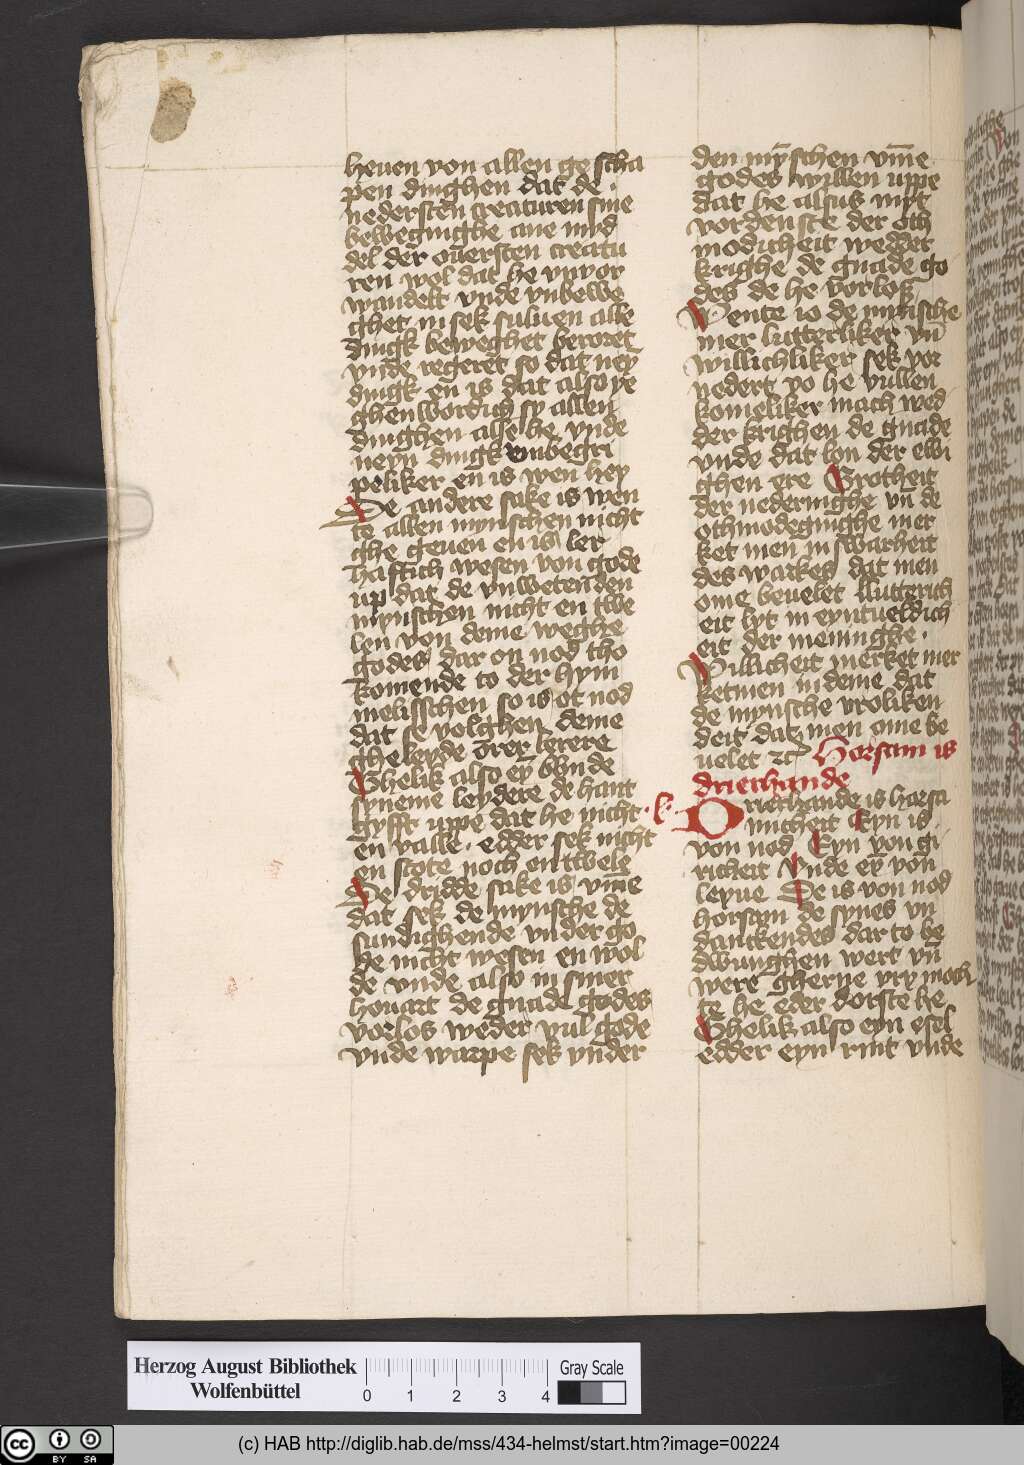 heuen von allen ge scha
pen dinghen dat de ·
nedersten creaturen sine
beweginghe ane mid
del der ouersten creatu
ren wol dat he vnvor
wandelt vnde vnbewe
ghet in sek suluen alle
dingk beweghet beroret
vnde regeret so dat ney
dingk en is dat also ye
ghenwordich sy allen
dinghen alse he vnde
neyn dingk vmbegri
peliker en is wen hey
De andere sake is wen
te allen mynschen nicht
ghe geuen en is ler
haftich wesen von gode
up dat de vnwetenden
mynschen nicht en twe
len von deme weghe
godes dar on nod tho
komende to der hym
melisschen so is ot nod
dat se volghen deme
gheleyde orer lerere
Ghelik also eȳ blinde
syneme leydere de hant
gyfft uppe dat he nicht
en valle · edder sek nicht
en stote noch en twele
De dridde sake is vm̄e
dat sek de mynsche de
sundighende vnder go
he nicht wesen en wol
de vnde also in siner
houart de gnade godes
vorlos weder vul gode
vnde warpe sek vnder
den mȳschen vm̄e
godes wyllen uppe
dat he alsus myt
vordenste der oth
modicheit wedder
krighe de gnade go
des de he vorlos
Wente io de mynsche
mer lutterliker vn̄
willichliker sek vor
nedert yo he vullen
komeliker mach wed
der krighen de gnade
vnde dat lon der ewi
ghen ere Grotheit
der nederninghe vn̄ de
othmodeginghe mer
ket men in swarheit
des warkes dat men
ome beuelet Llutterich
eit lyt in eyntueldich
eit der meninghe ·
Willicheit merket mer
ketmen in deme dat
de mynsche vroliken
deit dat men ome be
uelet ⁊c Horsam is
drierhande
· k · Drierhande is horsa
micheit Eyn is
von nod Eyn von gi
richeit Vnde eȳ von̄
leyue De is von nod
horsam de synes vn
danckendes dar to be
dwunghen wert vn̄
were gherne vry moch
te he eder dorste he
Ghelik also eyn esel
edder eyn rint vnde
Herzog August Bibliothek
Wolfenbüttel
0 1 2 3 4
Gray Scale
cc BY SA
(c) HAB http://diglib.hab.de/mss/434-helmst/start.htm?image=00224